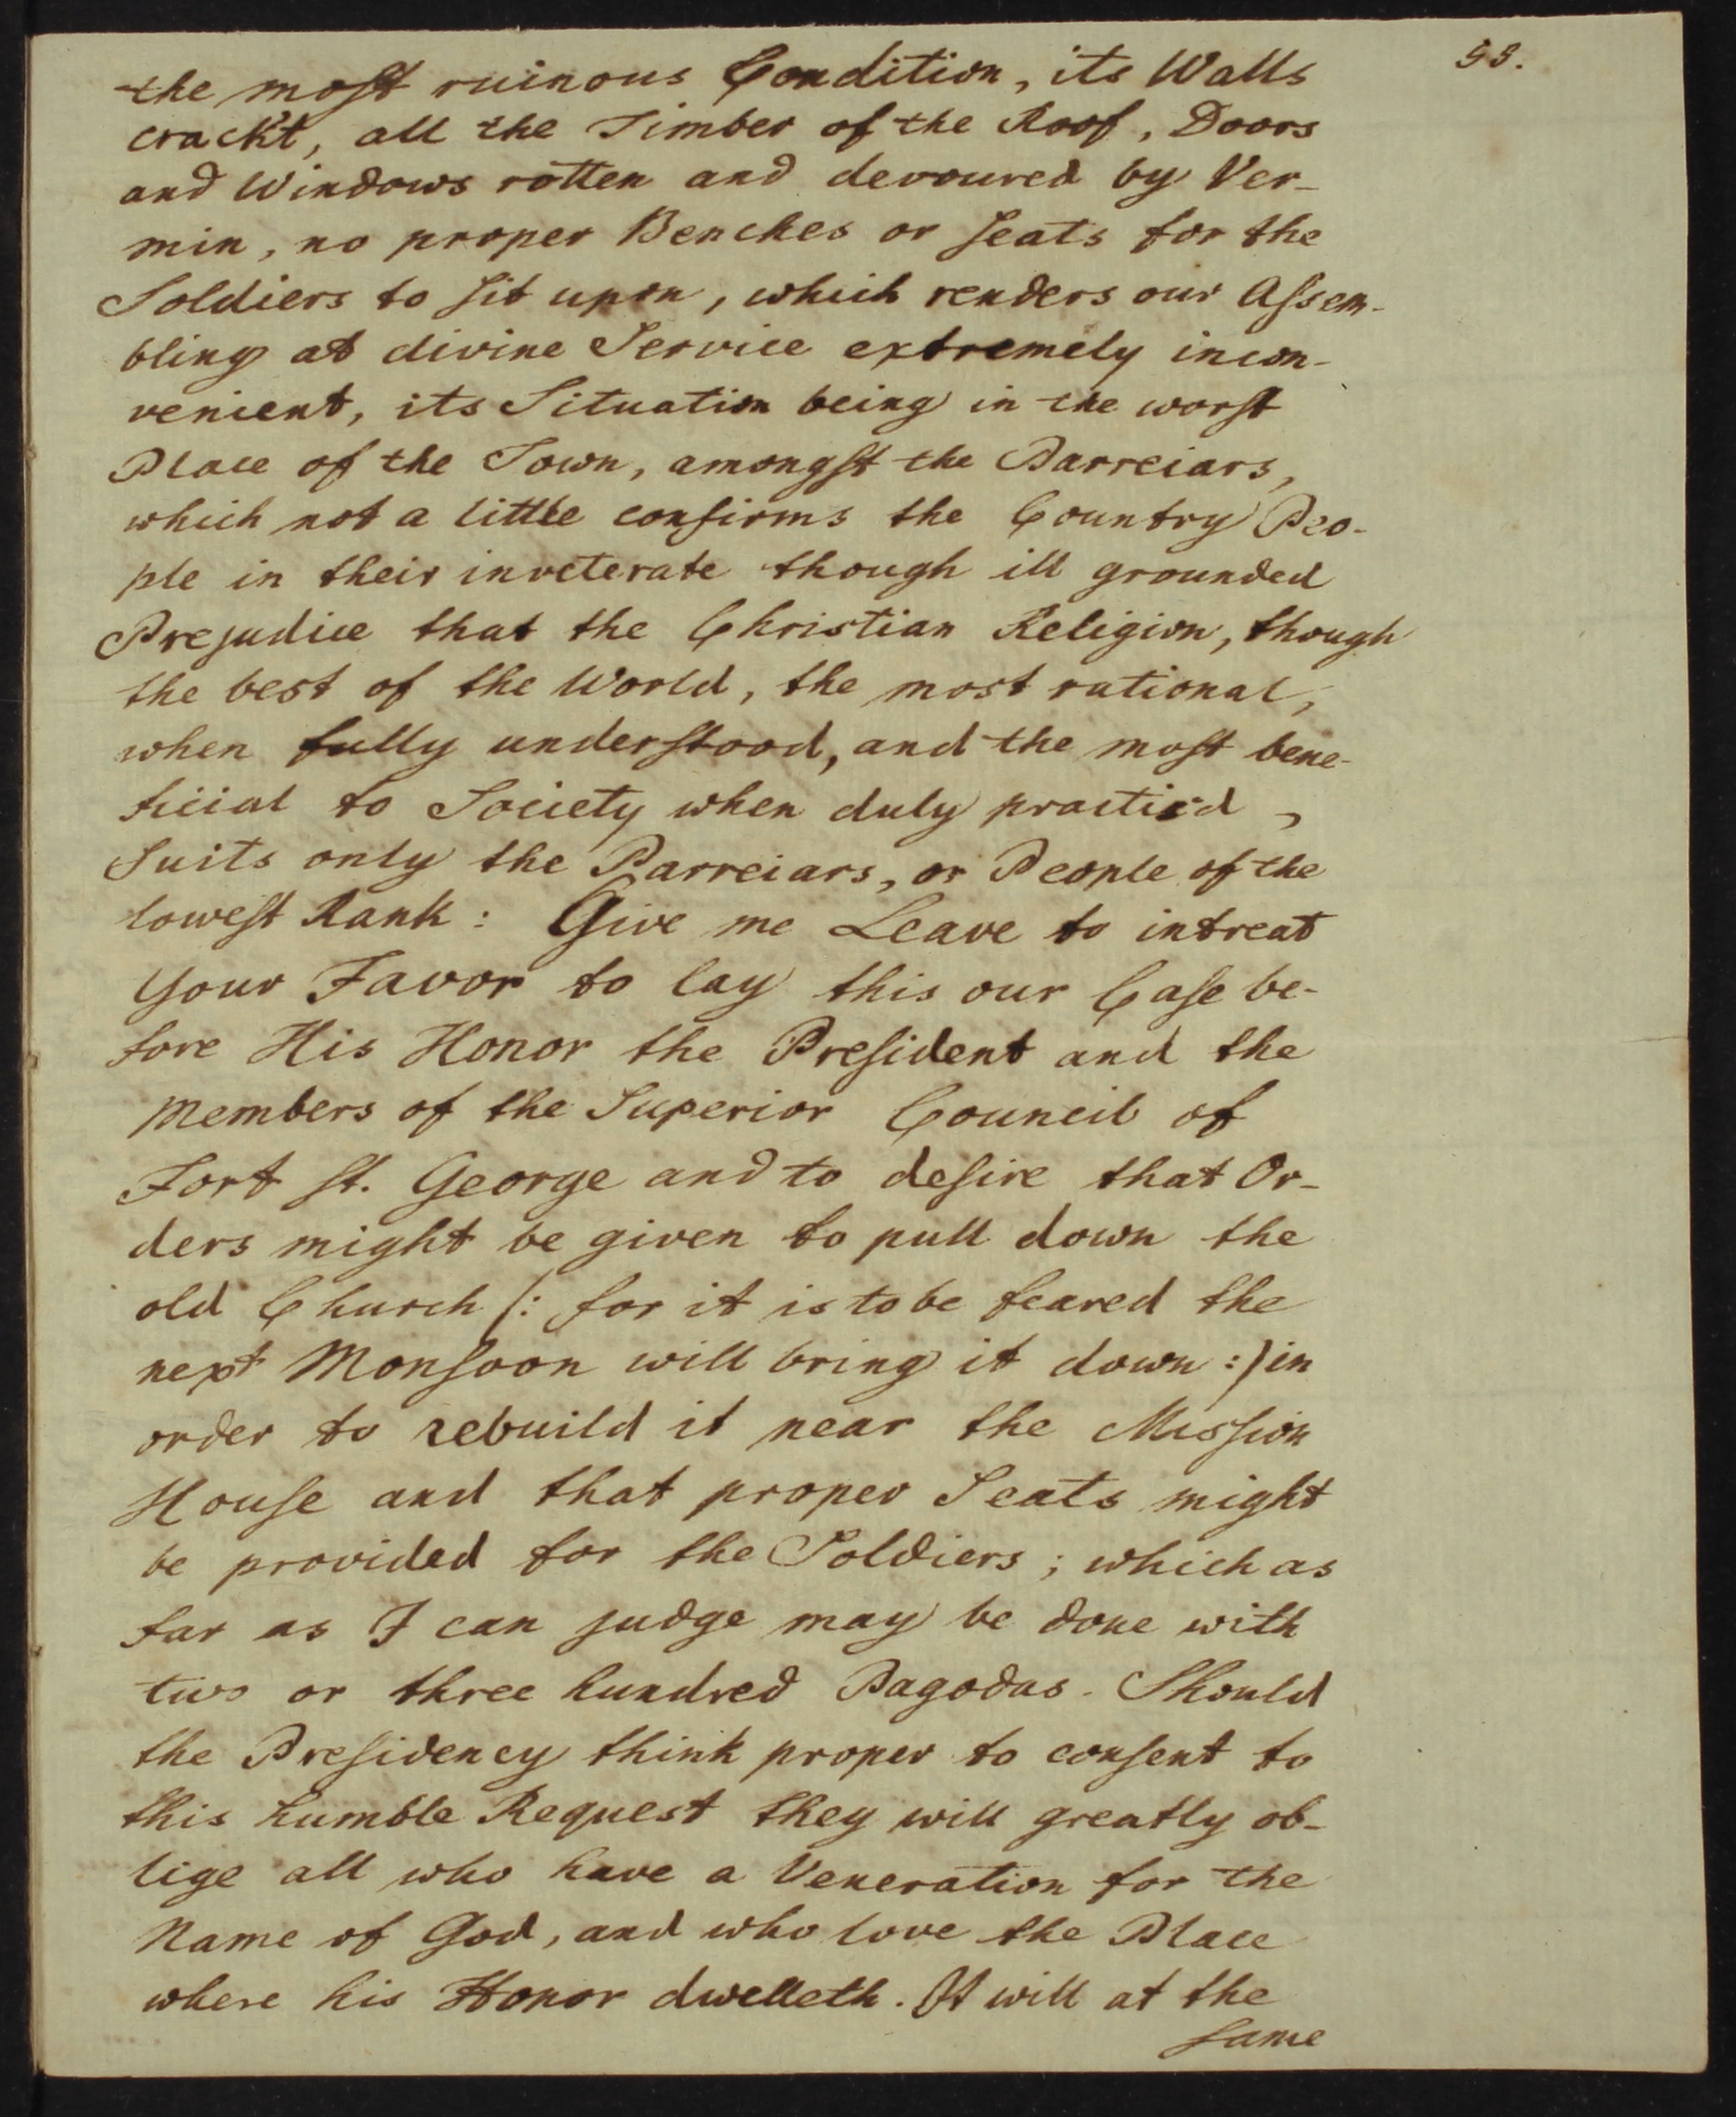 53.
the most ruinous Condition, its Walls
crackt, all the Timber of the Roof, Doors
and Windows rotten and devoured by Ver-
min, no proper Benches or Seats for the
Soldiers to sit upon, which renders our Assem-
bling at divine Service extremely incon-
venient, its Situation being in the worst
Place of the Town, amongst the Parreiars,
which not a little confirms the Country Peo-
ple in their inveterate though ill grounded
Prejudice that the Christian Religion, though
the best of the World, the most rational,
when fully understood, and the most bene-
ficial to Society when duly practic'd,
Suits only the Parreiars, or People of the
lowest Rank: Give me Leave to intreat
Your Favor to lay this our Case be-
fore His Honor the President and the
Members of the Superior Council of
Fort St. George and to desire that Or-
ders might be given to pull down the
old Church /: for it is to be feared the
next Monsoon will bring it down :/ in
order to rebuild it near the Mission
House and that proper Seats might
be provided for the Soldiers; which as
far as I can judge may be done with
two or three hundred Pagodas. Should
the Presidency think proper to consent to
this humble Request they will greatly ob-
lige all who have a Veneration for the
Name of God, and who love the Place
where his Honor dwelleth. It will at the
same